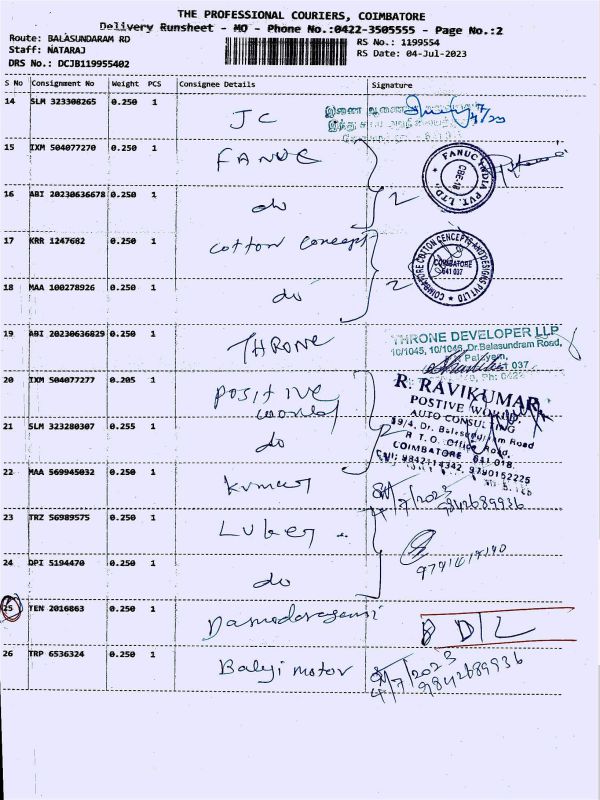 THE PROFESSIONAL COURIERS, COIMBATORE
Delivery Runsheet - MO - Phone No.:0422-3505555 - Page No.:2
Route: BALASUNDARAM RD
RS No.: 1199554
Staff: NATARAJ
RS Date: 04-Jul-2023
DRS No.: DCJB119955402
S No Consignment No Weight PCS Consignee Details Signature
14 SLM 323308265 0.250 1 JC
15 IXM 504077270 0.250 1 FANUC
FANUC INDIA PVT. LTD., CBE-18
16 ABI 20230636678 0.250 1 do 2
17 KRR 1247682 0.250 1 cotton concept
COIMBATORE COTTON CONCEPTS AND DESIGNS PVT LTD
COIMBATORE 641 037
18 MAA 100278926 0.250 1 do 2
19 ABI 20230636829 0.250 1 THRONE
THRONE DEVELOPER LLP
10/1045, 10/1046, Dr.Balasundram Road,
Palayam,
037
20 IXM 504077277 0.205 1 positive world
R. RAVIKUMAR
POSTIVE WORLD,
AUTO CONSULTING
89/4, Dr. Balasundram Road
R. T. O. Office Road,
COIMBATORE - 641 018.
Cell: 9842114342, 9790152225
21 SLM 323280307 0.255 1 do
22 MAA 569945032 0.250 1 Kumar 4/7/2023 9842689936
23 TRZ 56989575 0.250 1 Luker
24 DPI 5194470 0.250 1 do
25 TEN 2016863 0.250 1 D/L
26 TRP 6536324 0.250 1 Balaji motor 4/7/2023 9842689936